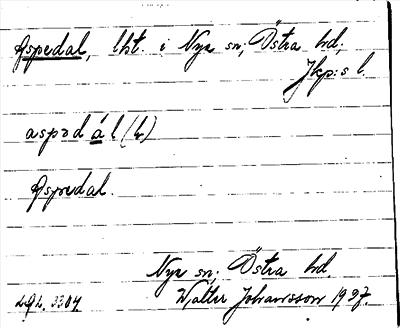 Aspedal, lht. i Nye sn, Östra hd,
Jkp:s l.
aspədál (h)
Aspedal.
Nye sn. Östra hd.
Walter Johansson 1937.